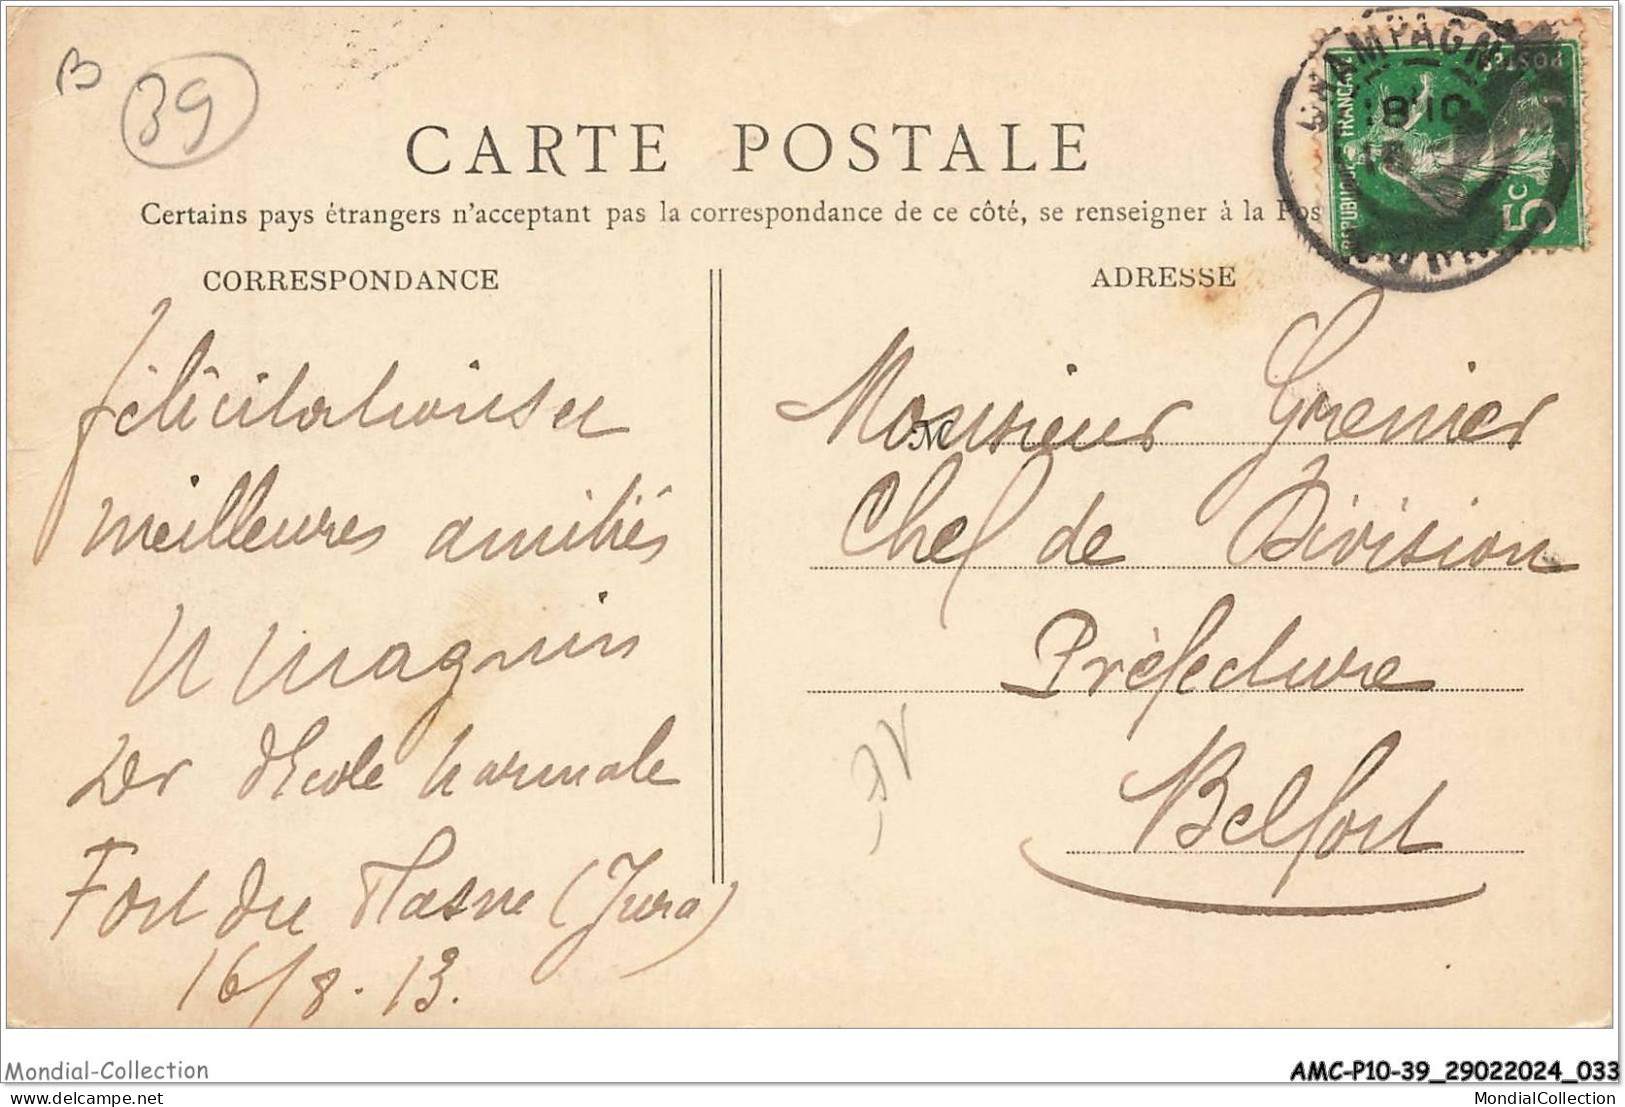 B
39
CARTE POSTALE
Certains pays étrangers n'acceptant pas la correspondance de ce côté, se renseigner à la Pos
CORRESPONDANCE
félicitations et
meilleures amitiés
Magnin
Der d'Ecole normale
Fort du Plasne (Jura)
16/8.13.
ADRESSE
M
Monsieur Grenier
Chef de Division
Préfecture
Belfort
CHAMPAGN
JURA
REPUBLIQUE FRANCAISE
POSTES
5c
Mondial-Collection
AMC-P10-39_29022024_033
delcampe.net
MondialCollection